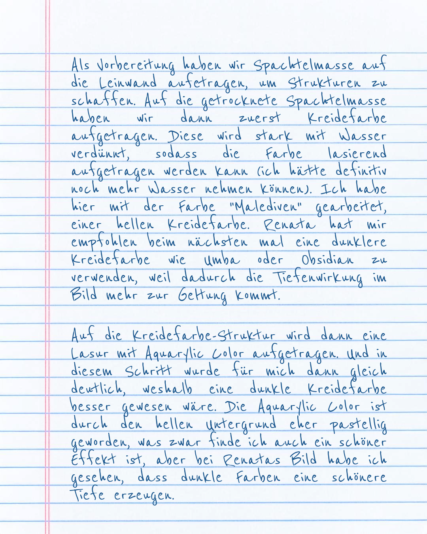 Als Vorbereitung haben wir Spachtelmasse auf
die Leinwand aufetragen, um Strukturen zu
schaffen. Auf die getrocknete Spachtelmasse
haben wir dann zuerst Kreidefarbe
aufgetragen. Diese wird stark mit Wasser
verdünnt, sodass die Farbe lasierend
aufgetragen werden kann (ich hätte definitiv
noch mehr Wasser nehmen können). Ich habe
hier mit der Farbe "Malediven" gearbeitet,
einer hellen Kreidefarbe. Renata hat mir
empfohlen beim nächsten mal eine dunklere
Kreidefarbe wie Umba oder Obsidian zu
verwenden, weil dadurch die Tiefenwirkung im
Bild mehr zur Geltung kommt.
Auf die Kreidefarbe-Struktur wird dann eine
Lasur mit Aquarylic Color aufgetragen. Und in
diesem Schritt wurde für mich dann gleich
deutlich, weshalb eine dunkle Kreidefarbe
besser gewesen wäre. Die Aquarylic Color ist
durch den hellen Untergrund eher pastellig
geworden, was zwar finde ich auch ein schöner
Effekt ist, aber bei Renatas Bild habe ich
gesehen, dass dunkle Farben eine schönere
Tiefe erzeugen.